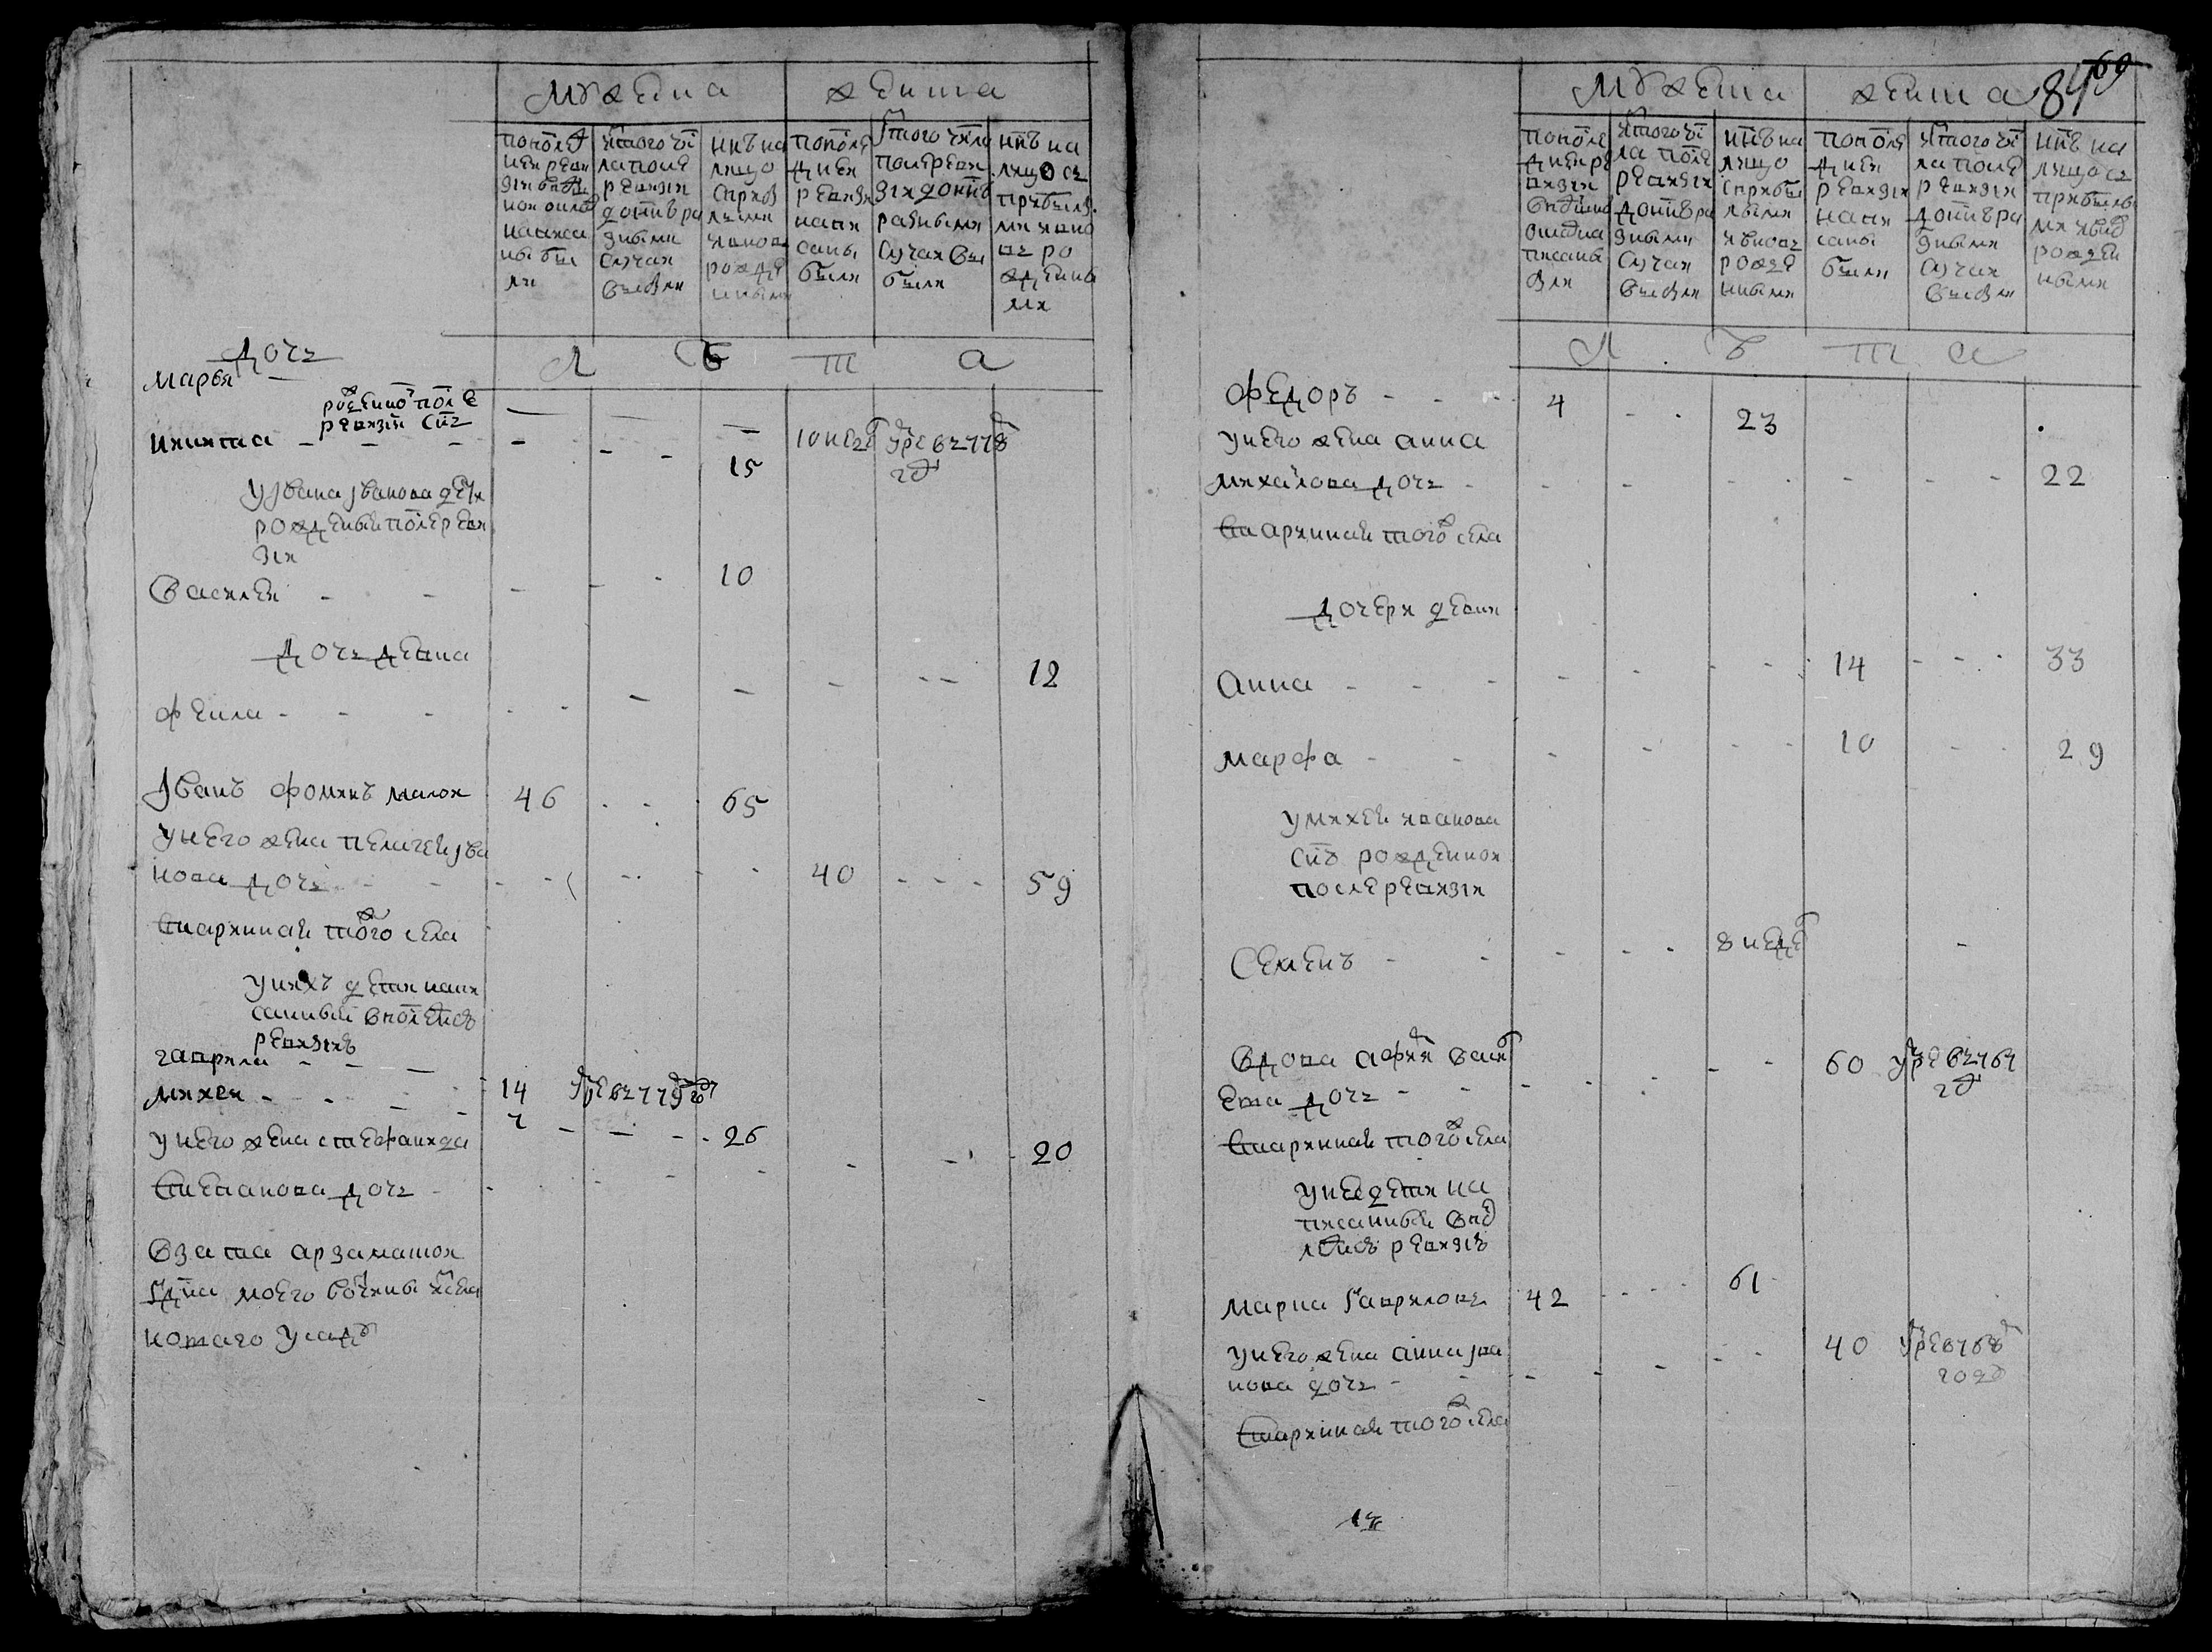 Мужеска
женска
по последней ревизии в подушной оклад написаны были
из того числа после ревизии до ныне разными случаи выбыли
ныне на лицо с прибылыми и вновь рожденными
по последней ревизии написаны были
из того числа после ревизии до ныне разными случаи выбыли
ныне на лицо съ прибылыми и вновь рожденными
Л Ѣ т а
дочь
марья
рожденой после
ревизии снъ
никита - - - 15
10 недель умре въ 778
году
у јвана јванова дети
рожденыи после реви
зии
Василеи - - - - 10
дочь девка
фекла - - - - 12
Јванъ фоминъ малои 46 - - 65
у него жена пелагея јва
нова дочь - - 40 - - - 59
Старинная того ж села
у нихъ дети напи
санныи в последней
ревизиѣ
гаврила - - - 14 умре въ 779 году
михеи - - - 7 - - - 26
у него жена стефанида
Степанова дочь - - - 20
Взята арзамаской
гдна моего вотчины из села
костаго усаду
69
84
Мужеска
женска
по последней ревизии в подушной оклад написаны были
из того числа после ревизии до ныне разными случаи выбыли
ныне на лицо с прибылыми и вновь рожденными
по последней ревизии написаны были
из того числа после ревизии до ныне разными случаи выбыли
ныне на лицо съ прибылыми и вновь рожденными
Л Ѣ т а
федоръ - - - 4 - - 23
у него жена анна
михаилова дочь - - - 22
Старинная того ж села
дочери девки
Анна - - - 14 - - - 33
марфа - - - 10 - - 29
у михеи иванова
снъ рожденнои
после ревизии
Семенъ - - - 8 недель
Вдова афи васи
ева дочь - - - 60 умре въ 764
году
Старинная того ж села
у нее дети на
писанныи в по
следней ревизиѣ
марка гавриловъ 42 - - - 61
у него жена анна јва
нова дочь - - - 40 умре в 768
году
Старинная того ж села